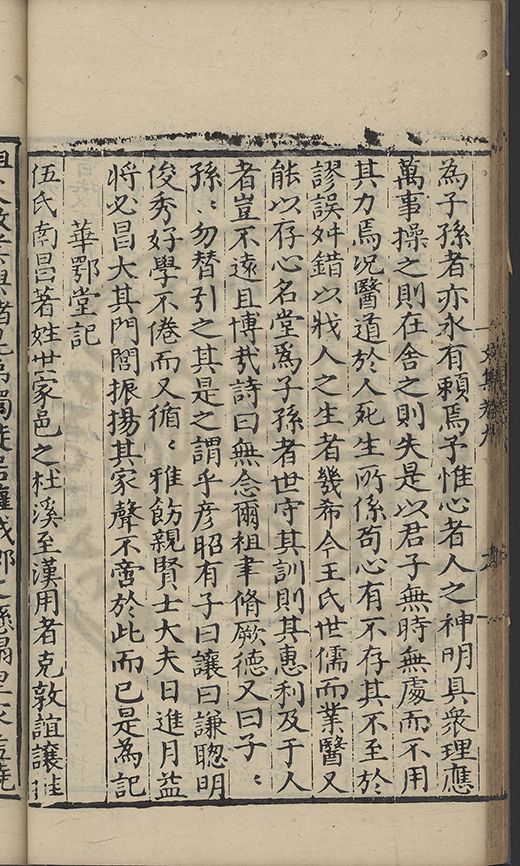 為子孫者亦永有賴焉予惟心者人之神明具衆理應
萬事操之則在舍之則失是以君子無時無處而不用
其力焉况醫道於人死生所係苟心有不存其不至於
謬誤舛錯以戕人之生者幾希今王氏世儒而業醫又
能以存心名堂爲子孫者世守其訓則其惠利及于人
者豈不遠且博哉詩曰無念爾祖聿脩厥德又曰子〻
孫〻勿替引之其是之謂乎彦昭有子曰讓曰謙聰明
俊秀好學不倦而又循〻雅飭親賢士大夫日進月益
將必昌大其門閭振揚其家聲不啻於此而已是為記
華鄂堂記
伍氏南昌著姓世家邑之杜溪至漢用者克敦誼讓推